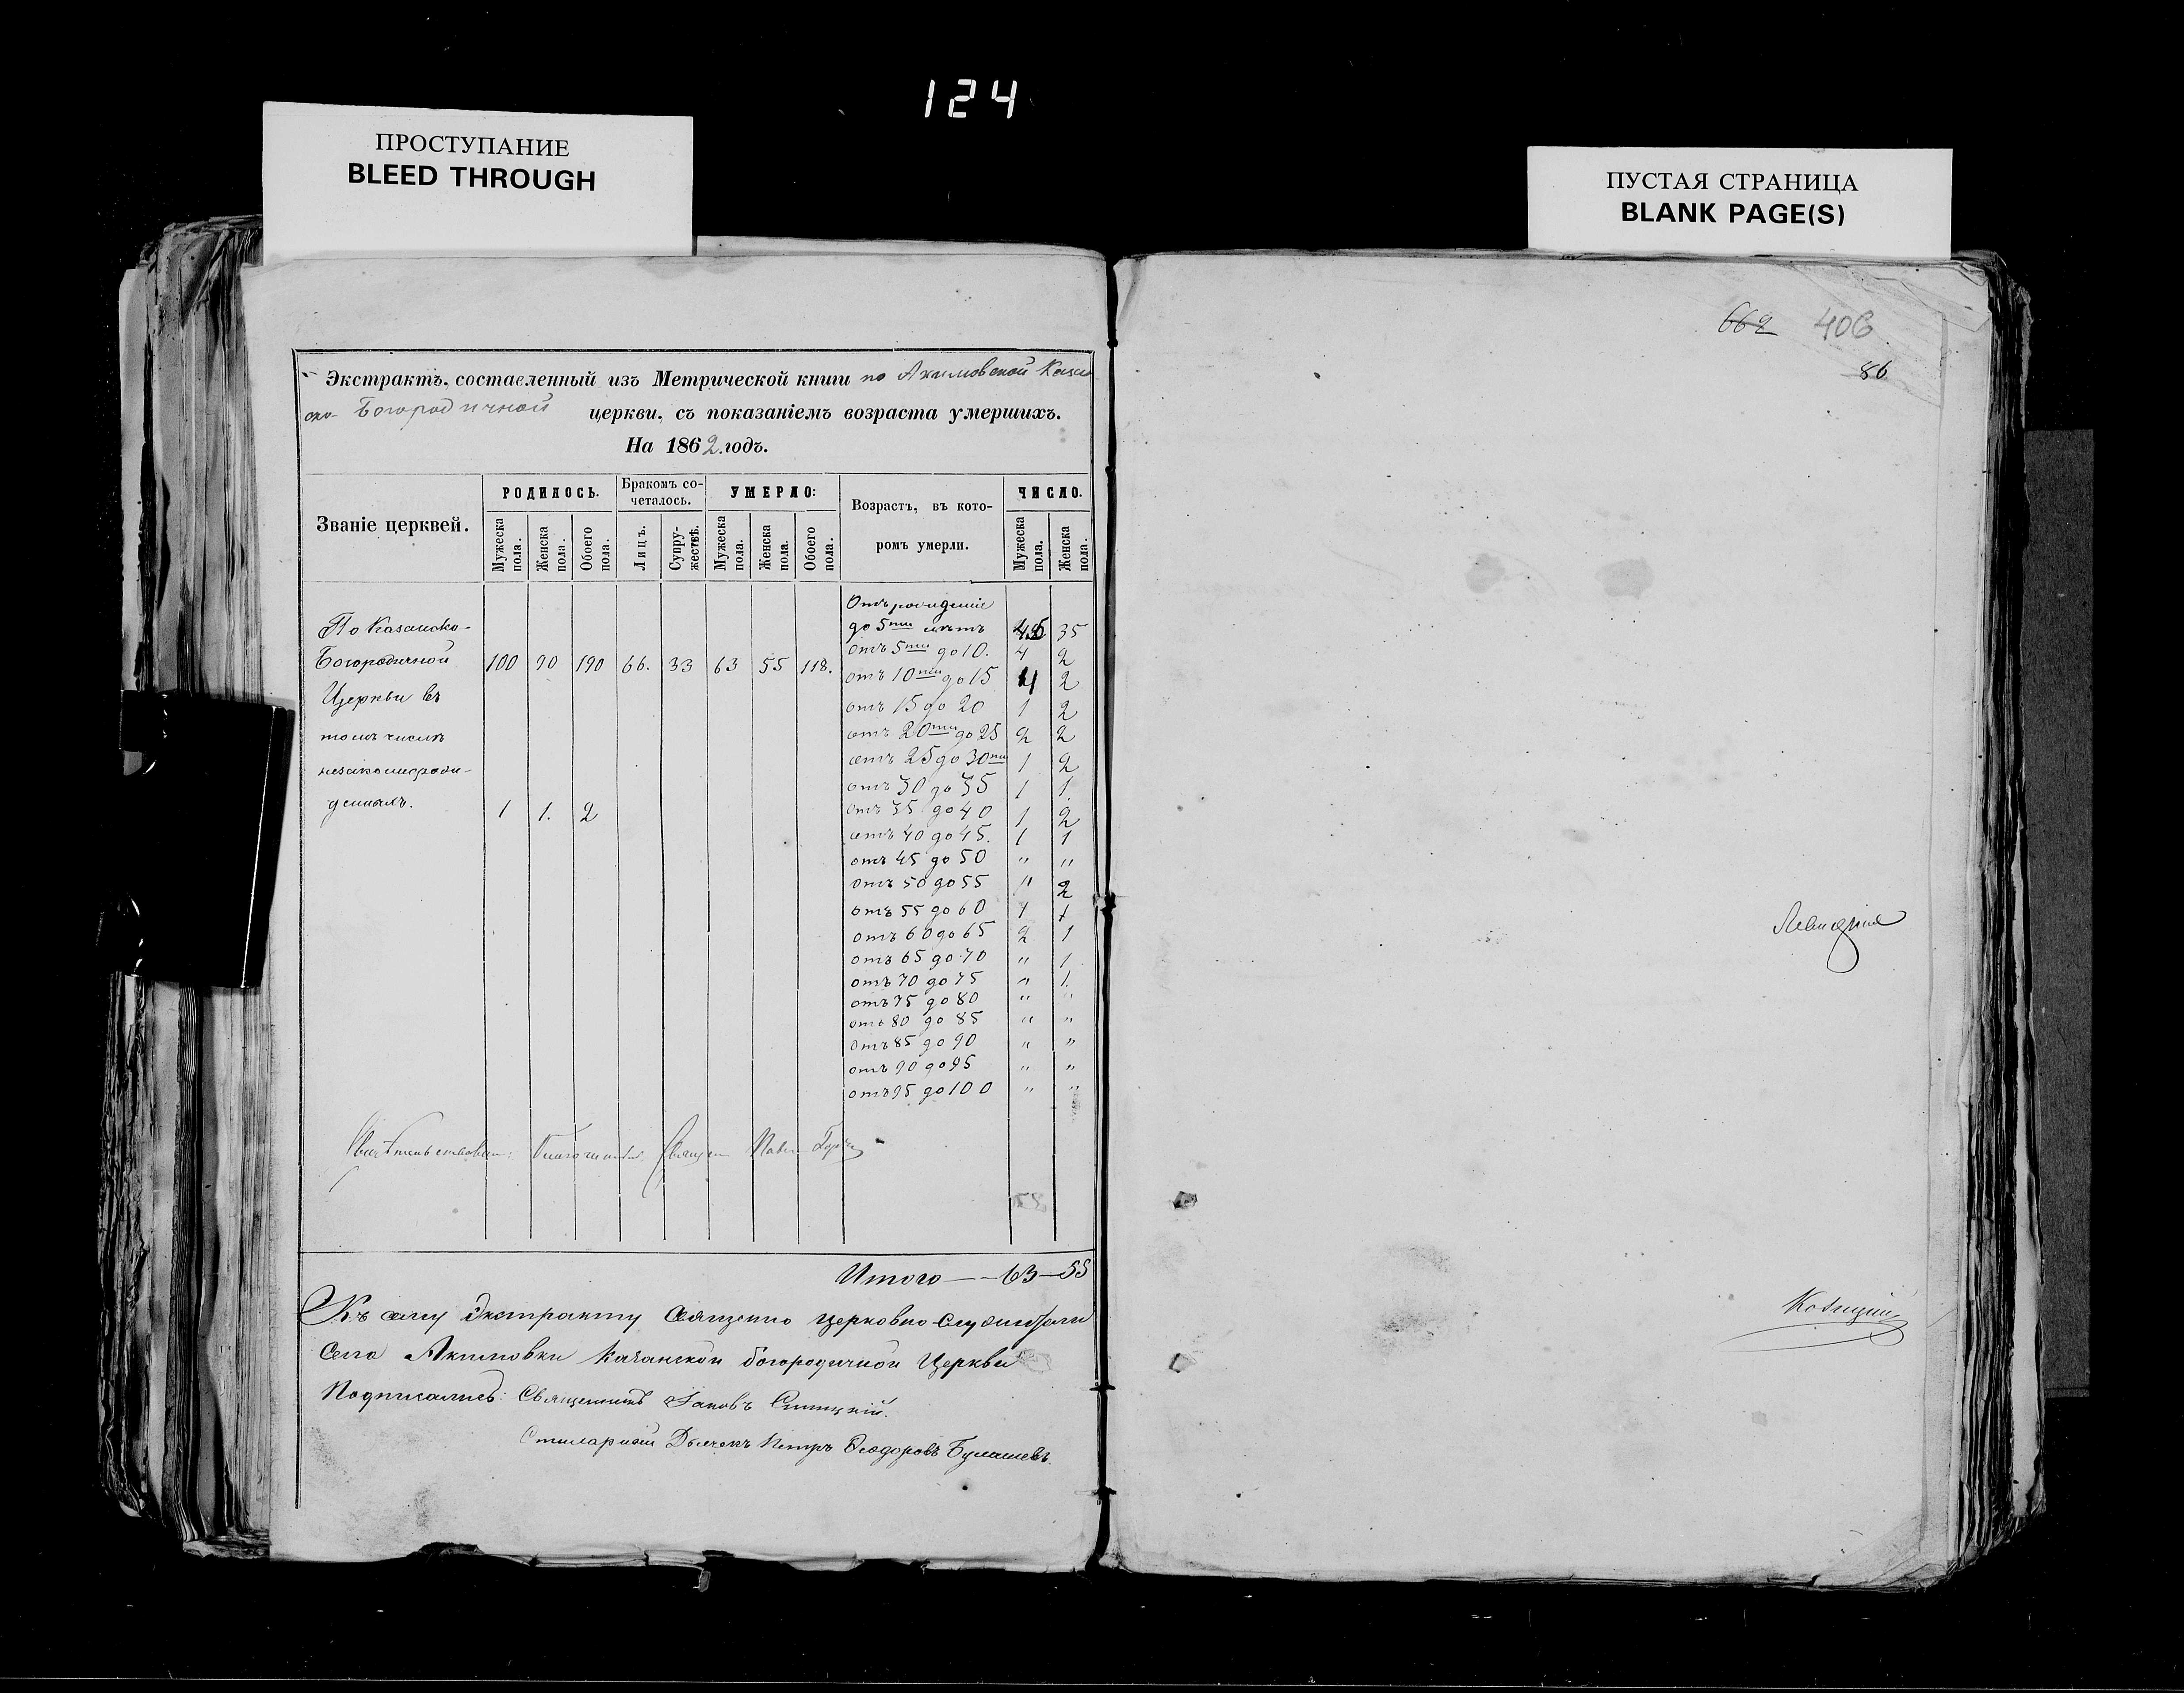 124
ПРОСТУПАНИЕ
BLEED THROUGH
ПУСТАЯ СТРАНИЦА
BLANK PAGE(S)
Экстрактъ, составленный изъ Метрической книги по Акимовской Казан
ско- Богородичной церкви, съ показаніемъ возраста умершихъ.
На 1862 годъ.
Званіе церквей.
РОДИЛОСЬ.
Бракомъ со-
четалось.
УМЕРЛО:
Возрастъ, въ кото-
ромъ умерли.
ЧИСЛО.
Мужеска пола.
Женска пола.
Обоего пола.
Лицъ.
Супру-
жествъ.
Мужеска пола.
Женска пола.
Обоего пола.
Мужеска пола.
Женска пола.
По Казанско-
Богородичной 100 90 190 66. 33 63 55 118.
Церкви въ
томъ числѣ
незаконнорож-
денныхъ. 1 1. 2
Отъ рожденія
до 5ти лѣтъ 45 35
отъ 5ти до 10. 4 2
отъ 10ти до 15 4 2
отъ 15 до 20 1 2
отъ 20ти до 25 2 2
отъ 25 до 30ти 1 2
отъ 30 до 35 1 1.
отъ 35 до 40 1 2
отъ 40 до 45. 1 1
отъ 45 до 50 " "
отъ 50 до 55 " 2
отъ 55 до 60 1 1
отъ 60 до 65 2 1
отъ 65 до 70 " 1
отъ 70 до 75 " 1.
отъ 75 до 80 " "
отъ 80 до 85 " "
отъ 85 до 90 " "
отъ 90 до 95 " "
отъ 95 до 100 " "
Благочинный Священ Павел
Итого — 63 — 55
Къ сему Экстракту Священно церковно-служители
Села Акимовки Казанской богородичной Церкви
Подписались: Священникъ Іаковъ
Дьячекъ Петръ Ѳеодоровъ
662 406
86